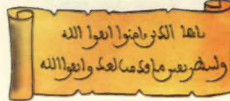 ياها الذين امنوا اتقوا الله
ولتنظر نفس ما قدمت لغد واتقوا الله